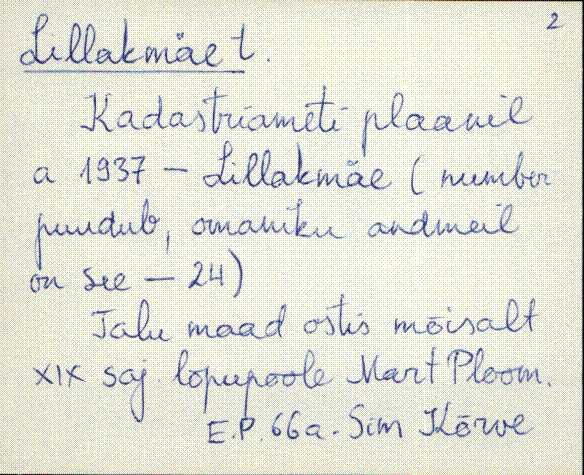 2
Lillakmäe t.
Kadastriameti plaanil
a 1937 – Lillakmäe (number
puudub, omaniku andmeil
on see – 24)
Talu maad ostis mõisalt
XIX saj. lõpupoole Mart Ploom.
E.P. 66a. Siim Kõrve